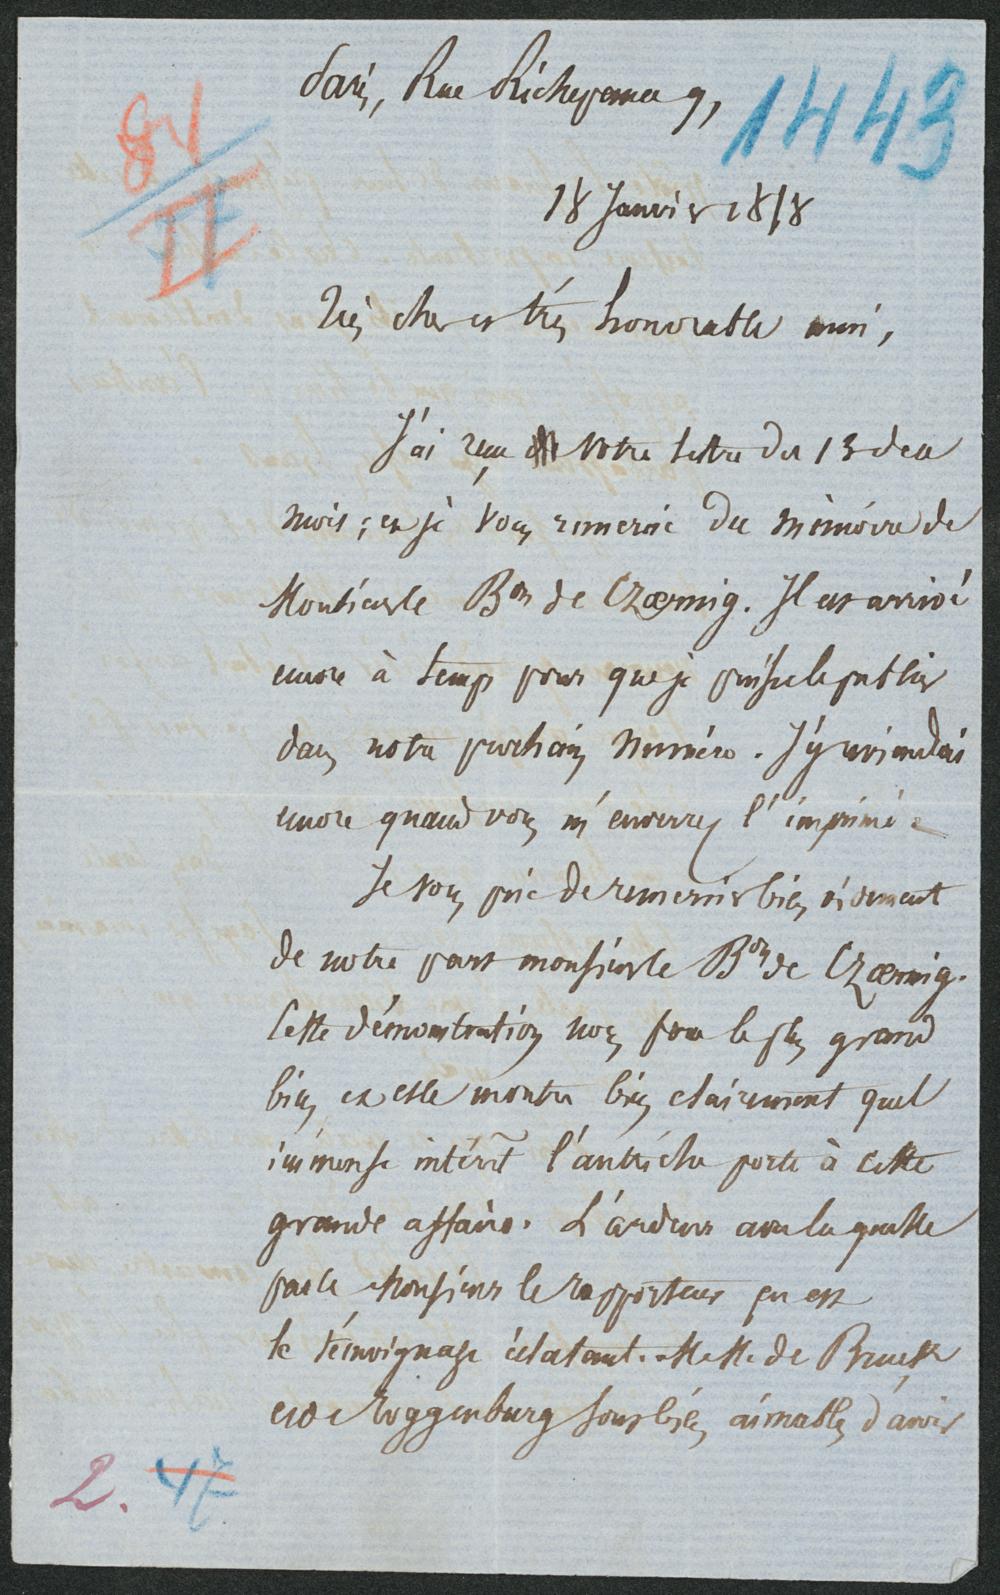 Paris, Rue Richepance 9,
1443
84
II
18 Janvier 1858
Très cher et très honorable ami,
J'ai reçu votre lettre du 13 de ce
mois; et je vous remercie du mémoire de
Monsieur le Bon de Czoernig. Il est arrivé
encore à temps pour que je puisse le publier
dans notre prochain Numéro. J'y reviendrai
encore quand vous m'enverrez l'imprimé.
Je vous prie de remercier bien vivement
de notre part monsieur le Bon de Czoernig.
Cette démonstration nous fera le plus grand
bien et elle montre bien clairement quel
immense intérêt l'autriche porte à cette
grande affaire. L'ardeur avec laquelle
parle Monsieur le rapporteur en est
le témoignage éclatant. M.M. de Bruck
et de Toggenburg sont bien aimables d'avoir
2. 47